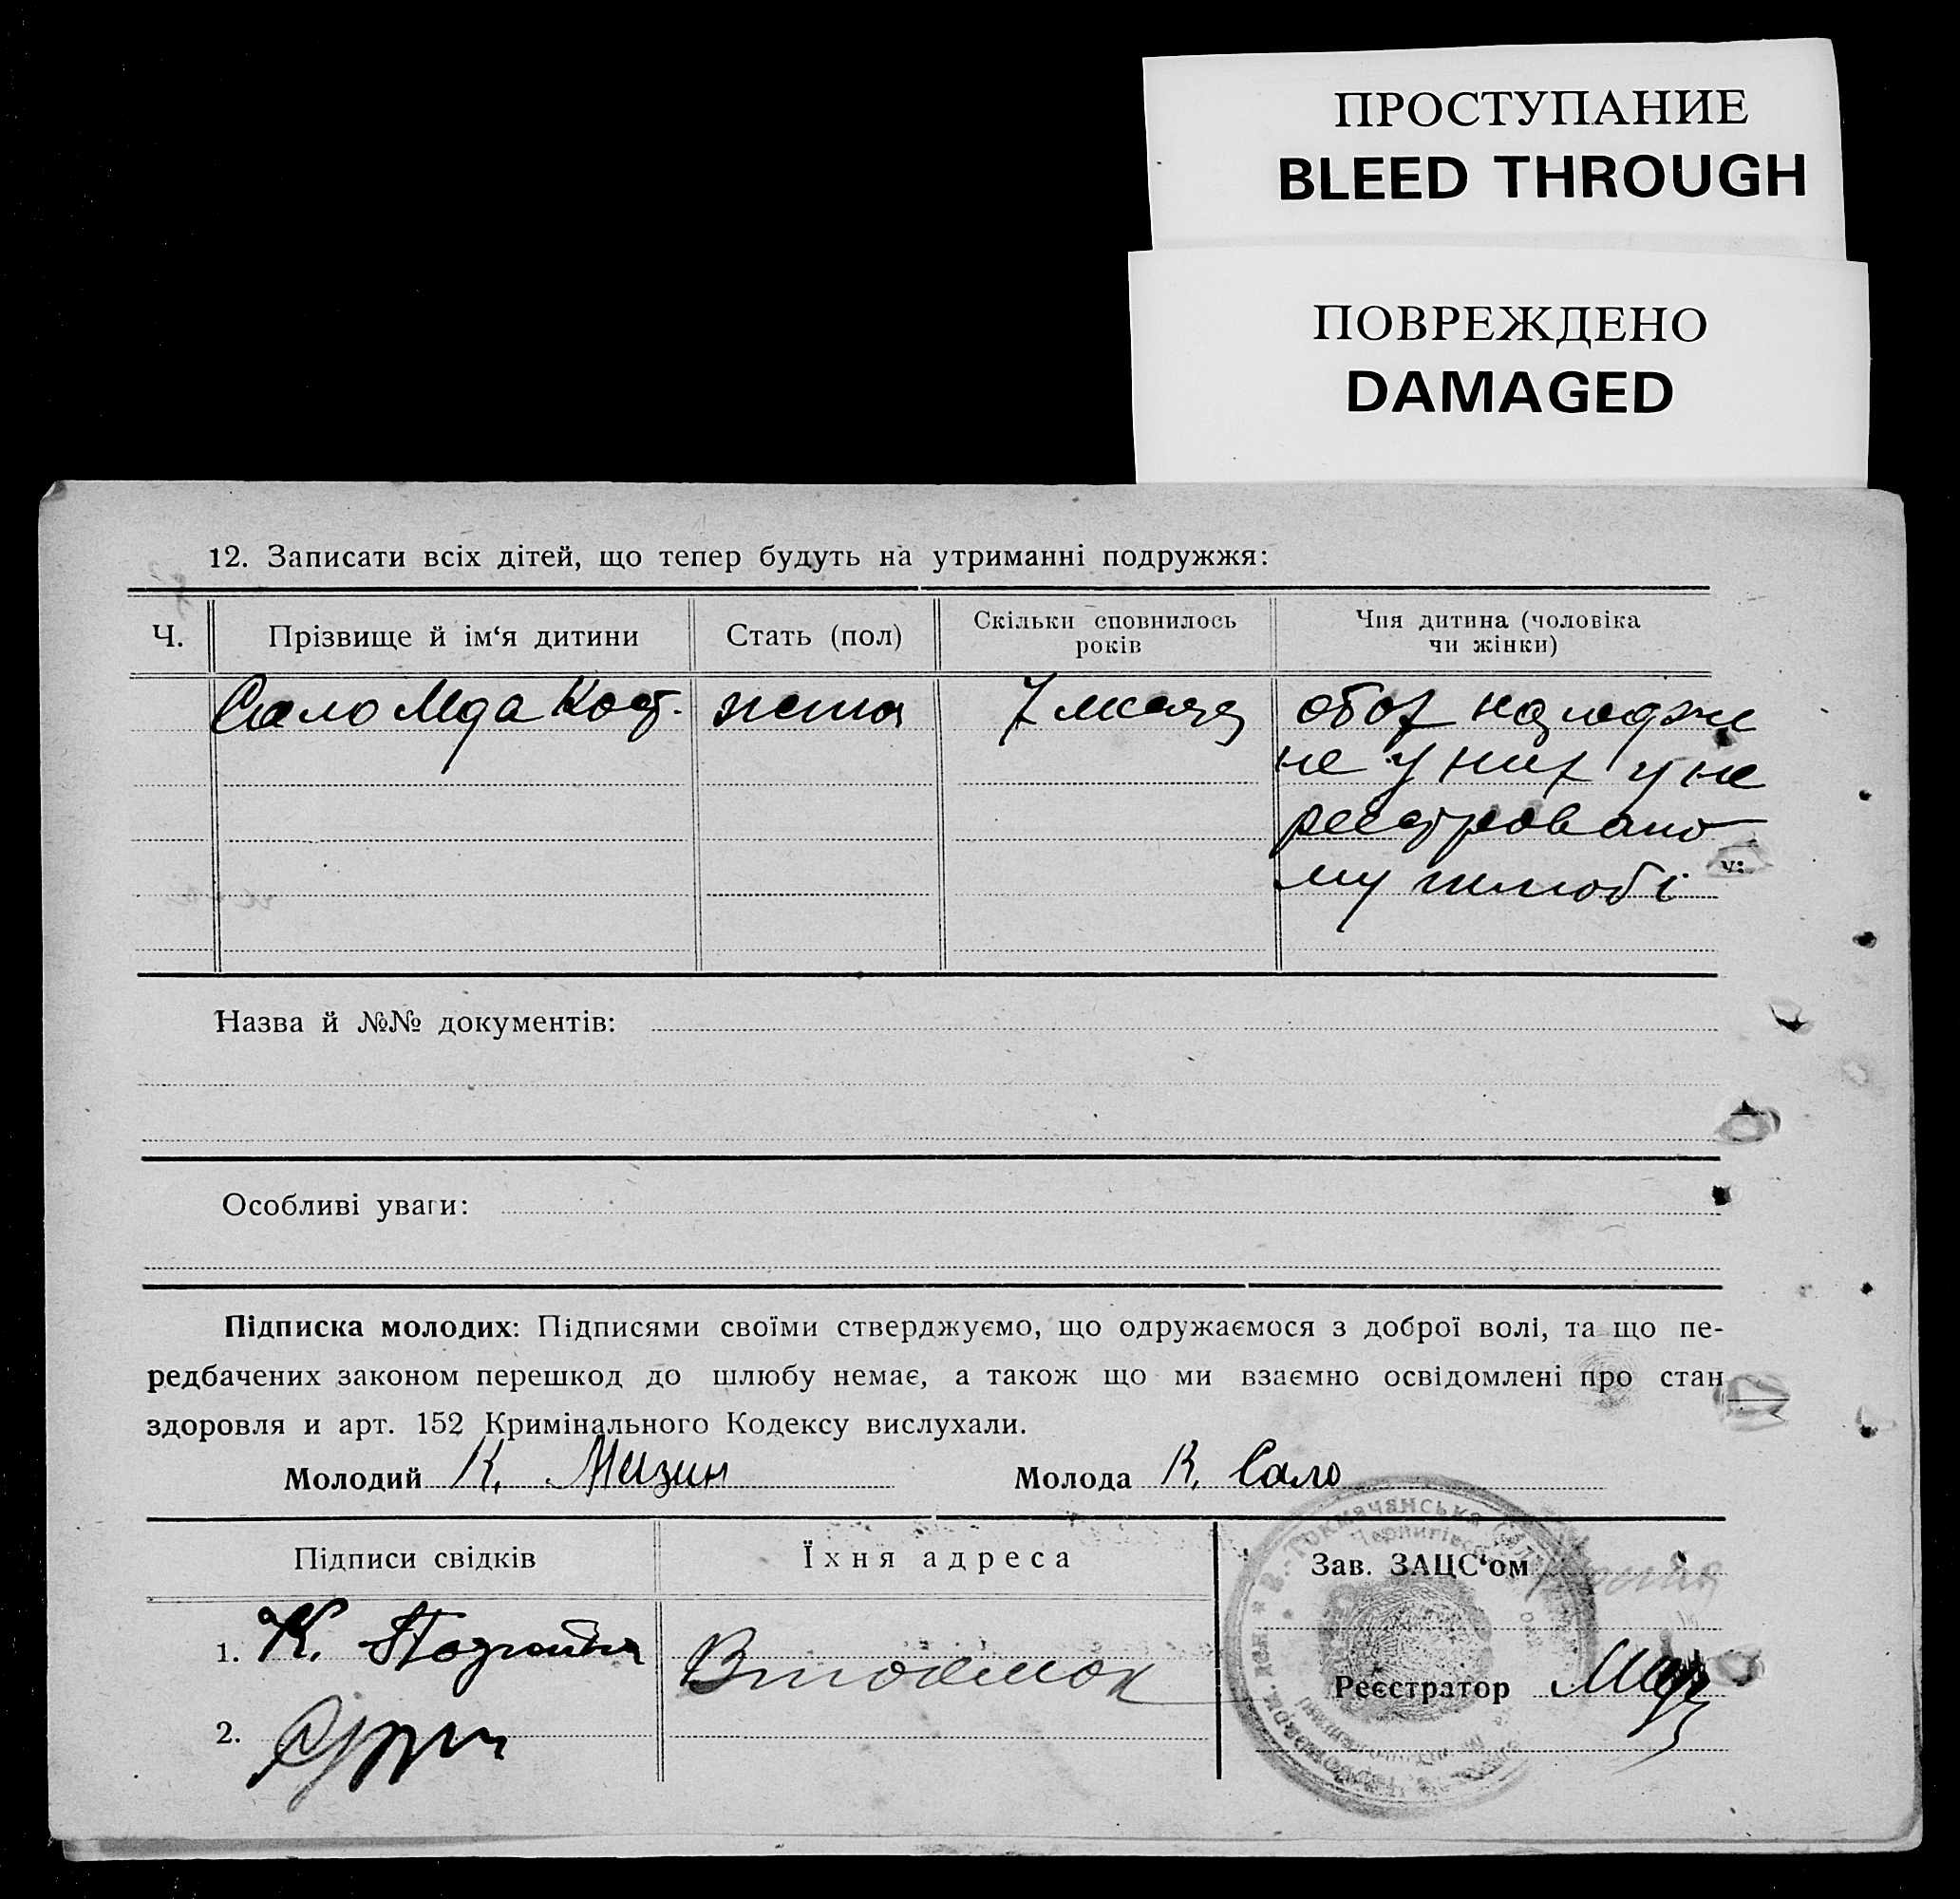 ПРОСТУПАНИЕ
BLEED THROUGH
ПОВРЕЖДЕНО
DAMAGED
12. Записати всіх дітей, що тепер будуть на утриманні подружжя:
Ч.
Прізвище й ім‘я дитини
Стать (пол)
Скільки сповнилось
років
Чия дитина (чоловіка
чи жінки)
Сало Кост. 7
не у них у не
реєстровано
му шлюбі
у:
Назва й №№ документів:
Особливі уваги:
Підписка молодих: Підписями своїми стверджуємо, що одружаємося з доброї волі, та що пе-
редбачених законом перешкод до шлюбу немає, а також що ми взаємно освідомлені про стан
здоровля и арт. 152 Кримінального Кодексу вислухали.
Молодий К. Мизин Молода К. Сало
Підписи свідків
Їхня адреса
Зав. ЗАЦС‘ом
1. К.
Втокмак
Реєстратор
2.